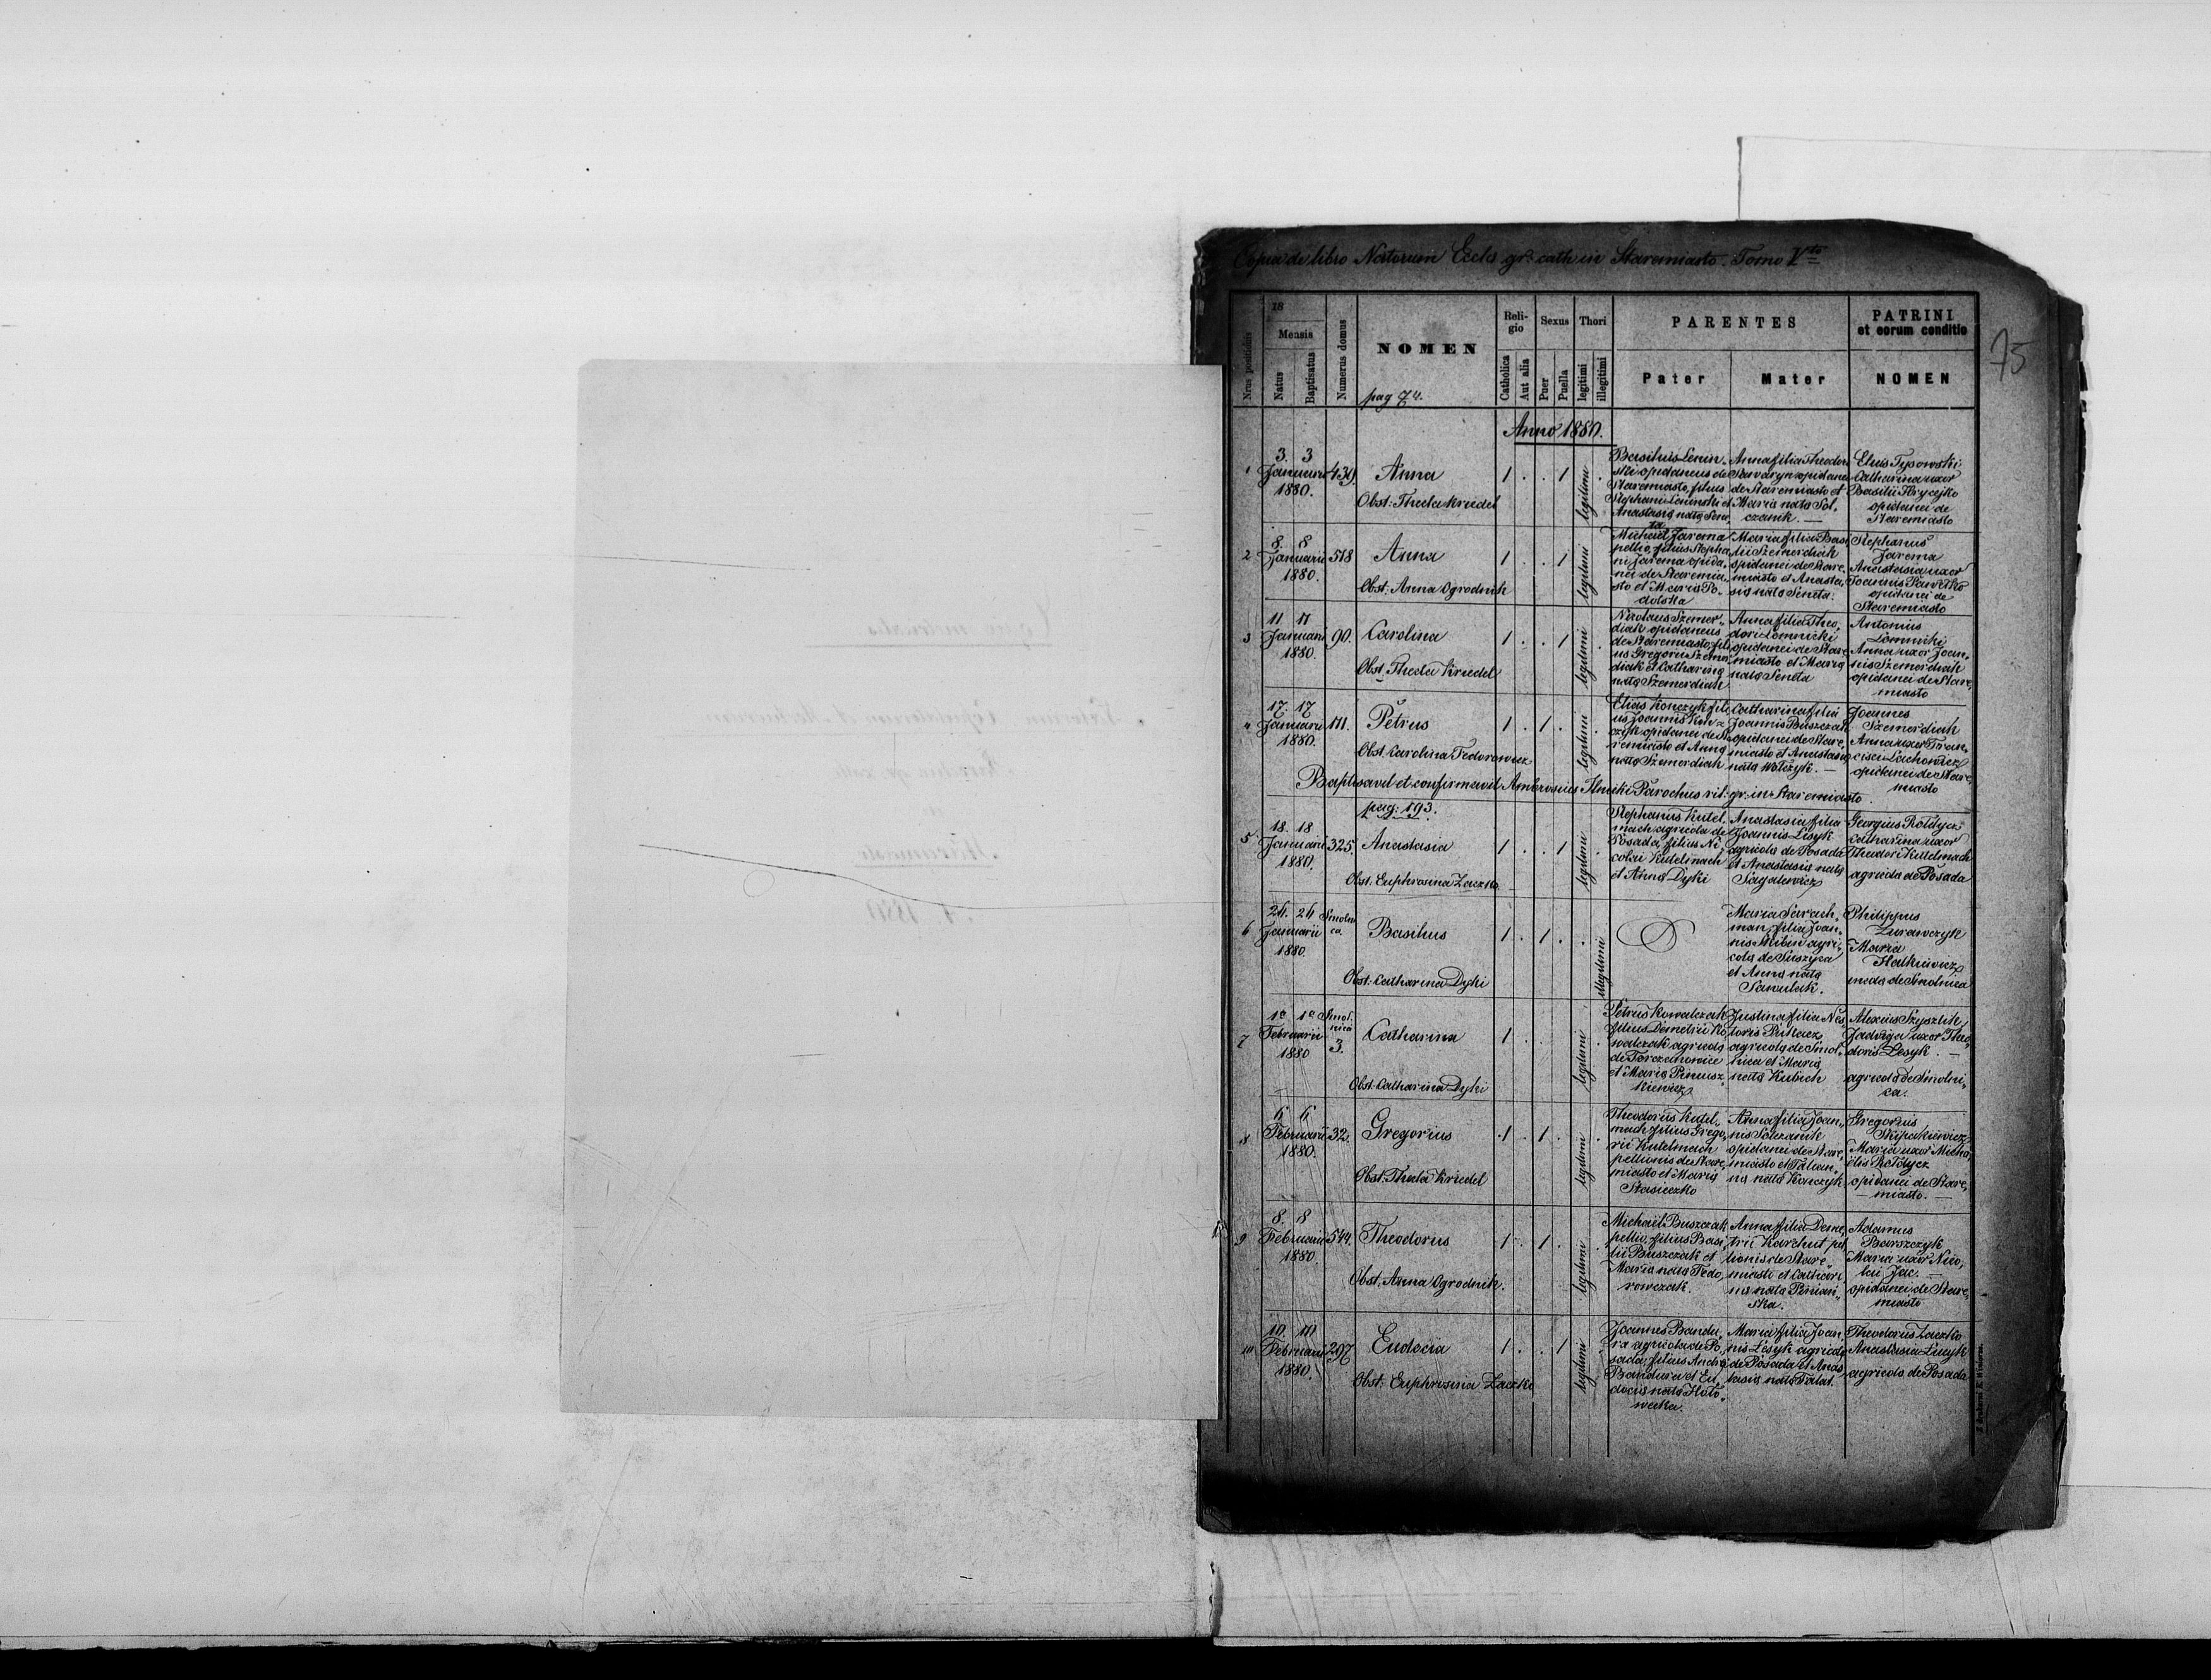 Copia de libro Natorum Eccls gr. cath in Staremiasto. Tomo V<sup>to</sup>
75
Nrus positionis
18
Mensis
Natus
Baptisatus
Numerus domus
NOMEN
pag 74.
Religio
Catholica
Aut alia
Sexus
Puer
Puella
Thori
legitimi
illegitimi
PARENTES
Pater
Mater
PATRINI
et eorum conditio
NOMEN
Anno 1880.
1
3. 3
Januarii
1880.
439
Anna
Obst. Thecla Kriedel
1 . . 1
legitimi
Basilius Lenin-
ski opidaneus de
Staremiasto, filius
Stephani Leninski et
Anastasia nata Sene
ta
Anna filia Theodori
Sawaryn opidanei
de Staremiasto et
Maria nata Sol-
czanik. —
Elias Tysowski
Catharina uxor
Basilii Hrycejko
opidanei de
Staremiasto
2
8. 8
Januarii
1880.
518
Anna
Obst. Anna Ogrodnik
1 . . 1
legitimi
Michael Jarema
pellio, filius Stepha
ni Jarema opida-
nei de Staremia-
sto et Maria Po-
dolska
Maria filia Basi
lii Szemerdiak
opidanei de Stare-
miasto et Anasta-
sia nata Seneta.
Stephanus
Jarema
Anastasia uxor
Joannis Pawelko
opidanei de
Staremiasto
3
11 11
Januarii
1880.
90.
Carolina
Obst. Thecla Kriedel
1 . . 1
legitimi
Nicolaus Szemer-
diak opidaneus
de Staremiasto, fili
us Gregorii Szemer-
diak et Catharina
nata Szemerdiak
Anna filia Theo-
dori Łomnicki
opidanei de Stare-
miasto et Maria
nata Seneta
Antonius
Łomnicki
Anna uxor Joan-
nis Szemerdiak
opidanei de Stare-
miasto
4
17. 17
Januarii
1880.
171.
Petrus
Obst. Carolina Fedorowicz
1 . 1 .
legitimi
Elias Konczyk fili
us Joannis Kon-
czyk opidanei de Sta
remiasto et Anna
nata Szemerdiak
Catharina filia
Joannis Buszczak
opidanei de Stare-
miasto et Anastasia
nata Wołczyk. —
Joannes
Szemerdiak
Anna uxor Fran-
cisci Lachowicz
opidanei de Stare-
miasto
Baptisavit et confirmavit Ambrosius Ilnicki Parochus rit. gr. in Staremiasto.
pag: 193.
5
18. 18
Januarii
1880.
325.
Anastasia
Obst. Euphrosina Laczko
1 . . 1
legitimi
Stephanus Kutel-
mach agricola de
Posada, filius Ni-
colai Kutelmach
et Anna Dyki
Anastasia filia
Joannis Lesyk
agricola de Posada
et Anastasia nata
Sagalewicz
Georgius Rotdycz
Catharina uxor
Theodori Kutelmach
agricola de Posada
6
24. 24
Januarii
1880.
Smolni
ca.
Basilius
Obst. Catharina Dyki
1 . 1 . .
illegitimi
Maria Sarach-
man, filia Joan-
nis Skibin agri-
cola de Suszyca
et Anna nata
Sawulak.
Philippus
Zurawczyk
Maria
Hatkiewicz
de Smolnica
7
1<sup>a</sup> 1<sup>a</sup>
Februarii
1880
Smol-
nica
3.
Catharina
Obst. Catharina Dyki
1 .
legitimi
Petrus Kowalczak
filius Demetrii Ko-
walczak agricola
de Torczanowice
et Maria Pinusz
kiewicz
Justina filia Nes
toris Putkacz
agricola de Smol-
nica et Maria
nata Kubich
Alexius Szyszlik
Jadwiga uxor Theo
doris Lesyk. —
agricola de Smolni-
ca.
8
6 6
Februarii
1880.
32.
Gregorius
Obst. Thecla Kriedel
1 . 1 .
legitimi
Theodorus Kutel-
mach filius Grego-
rii Kutelmach
pellionis de Stare-
miasto et Maria
Stasieczko
Anna filia Joan-
nis Solczanik
opidanei de Stare-
miasto et Tatian-
na nata Konczyk
Gregorius
Skipakiewicz
Maria uxor Micha-
elis Rotdycz
opidanei de Stare-
— miasto. —
9
8. 8
Februarii
1880.
544.
Theodorus
Obst. Anna Ogrodnik.
1 . 1 .
legitimi
Michael Buszczak
pellio, filius Basi
lii Buszczak et
Maria nata Fedo-
rowczak.
Anna filia Deme-
trii Karchut pel
lionis de Stare-
miasto et Cathari
na nata Peniań-
ska.
Adamus
Barszczyk
Maria uxor Nico-
lai Jac. —
opidanei de Stare-
miasto
10
10. 10
Februarii
1880.
297
Eudocia
Obst. Euphrosina Laczko
1 . . 1
legitimi
Joannes Bandu-
ra agricola de Po-
sada, filius Andrea
Bandura et Eu-
docia nata Hoło-
wecka.
Maria filia Joan
nis Lesyk agricola
de Posada et Anas
tasia nata Fatat.
Theodorus Laczko
Anastasia Lusyk
agricola de Posada
Z drukarni E. Winiarza.